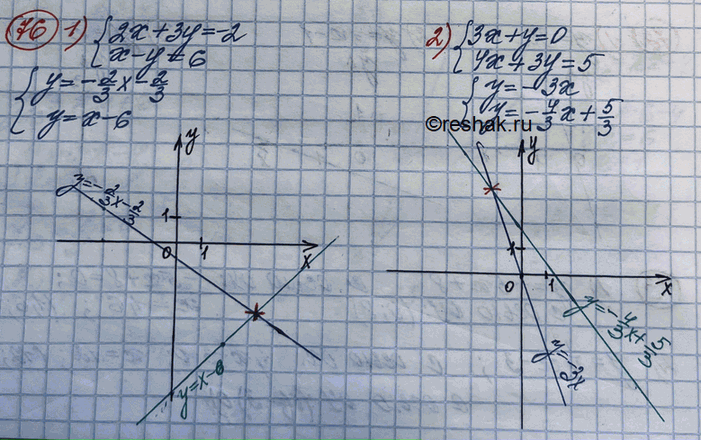 76 1) { 2x+3y=-2
x-y=6
{ y=-2/3x-2/3
y=x-6
y
y=-2/3x-2/3
1
0 1 x
y=x-6
2) { 3x+y=0
4x+3y=5
{ y=-3x
y=-4/3x+5/3
©reshak.ru
y
1
0 1 x
y=-4/3x+5/3
y=-3x